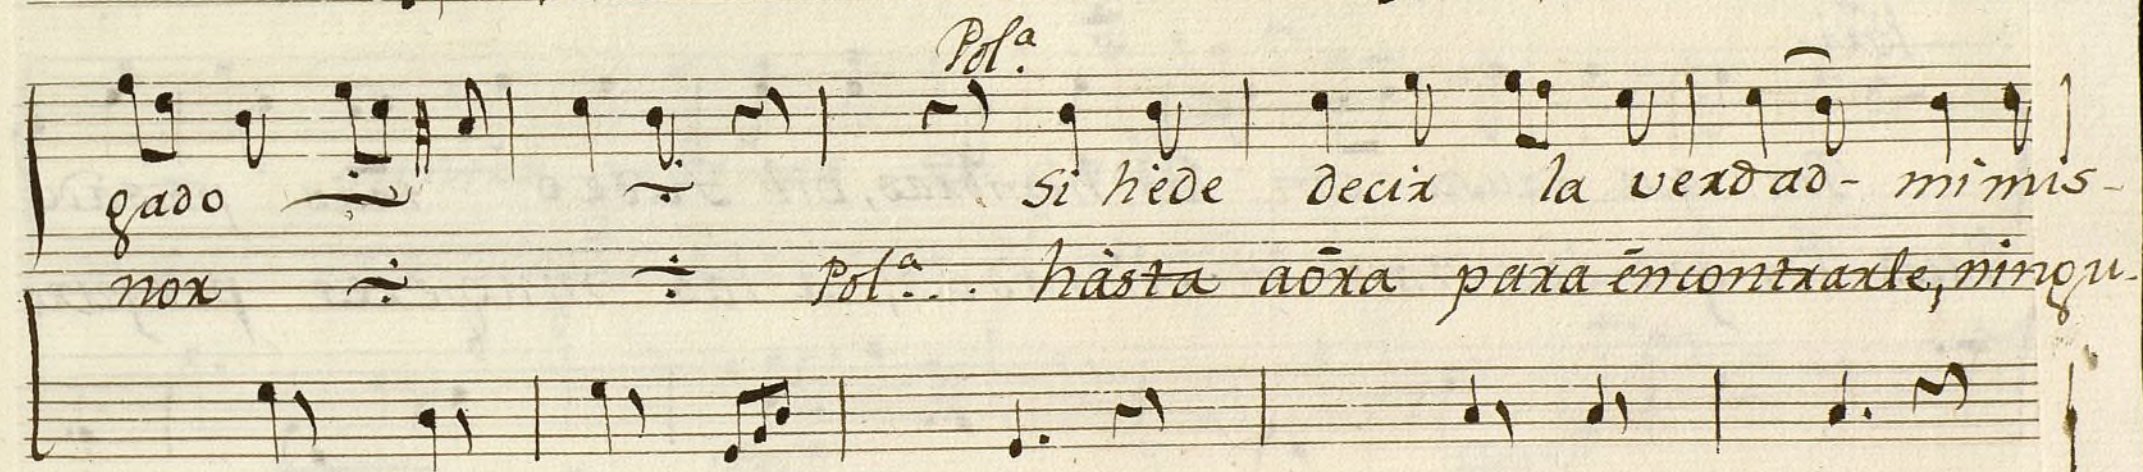 Pol.ª
gado ⁓ ⁓ Si hède decir la verdad- mi mis-
nor ⁓ ⁓ Pol.ª.. hàsta aōra para ēncontrarle, ningu-